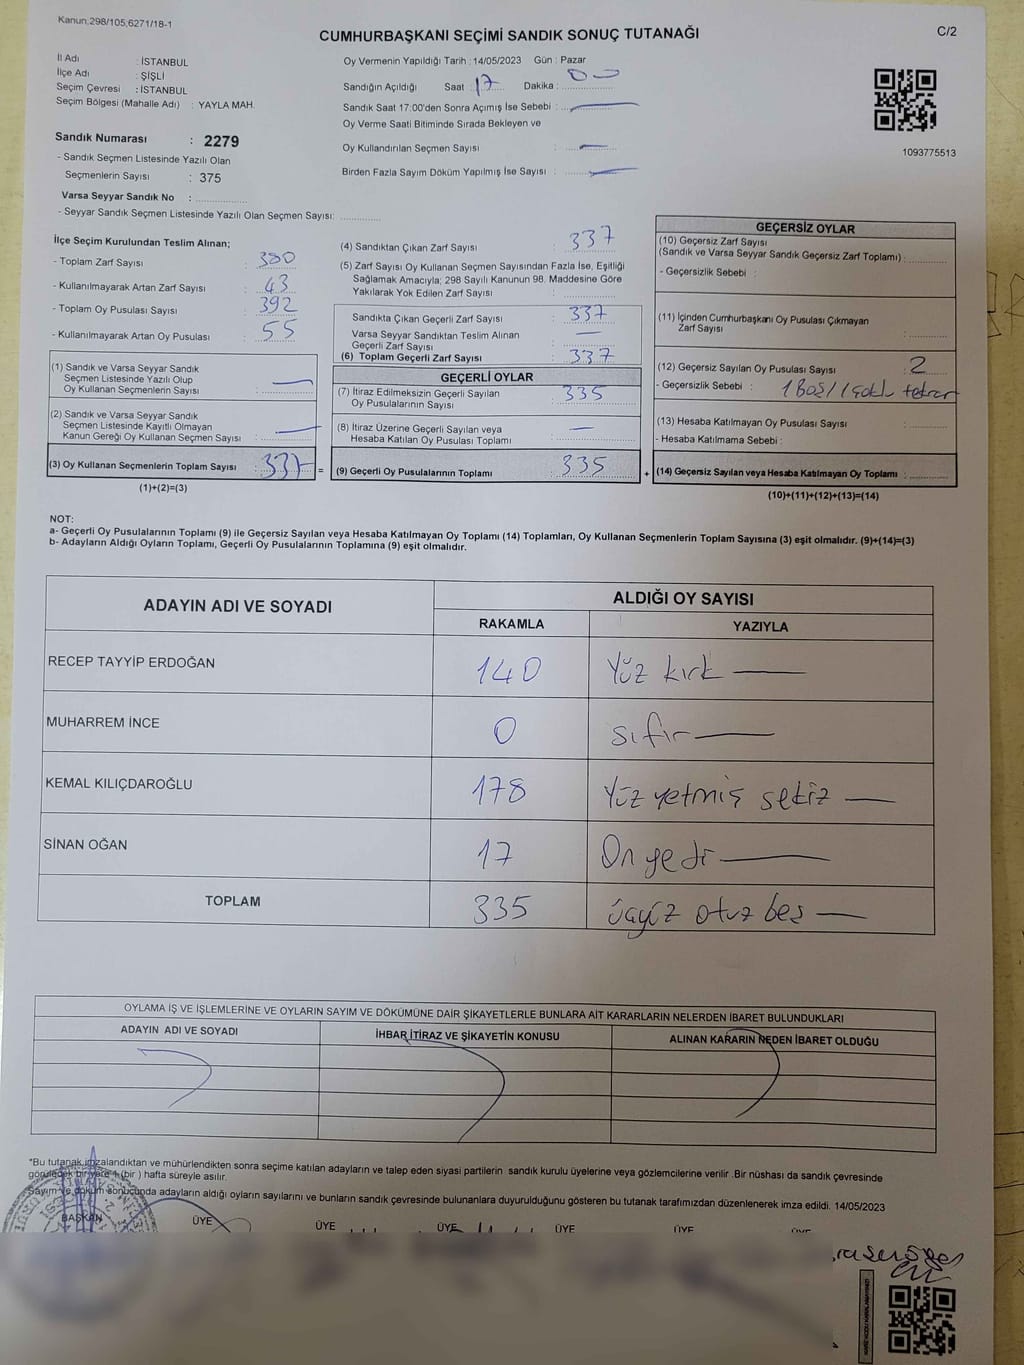 Kanun;298/105,6271/18-1
C/2
CUMHURBAŞKANI SEÇİMİ SANDIK SONUÇ TUTANAĞI
İl Adı : İSTANBUL
İlçe Adı : ŞİŞLİ
Seçim Çevresi : İSTANBUL
Seçim Bölgesi (Mahalle Adı) : YAYLA MAH.
Oy Vermenin Yapıldığı Tarih : 14/05/2023 Gün : Pazar
Sandığın Açıldığı Saat : 17 Dakika : 00
Sandık Saat 17:00'den Sonra Açılmış İse Sebebi :
Oy Verme Saati Bitiminde Sırada Bekleyen ve
Oy Kullandırılan Seçmen Sayısı :
Birden Fazla Sayım Döküm Yapılmış İse Sayısı :
1093775513
Sandık Numarası : 2279
- Sandık Seçmen Listesinde Yazılı Olan
Seçmenlerin Sayısı : 375
Varsa Seyyar Sandık No :
- Seyyar Sandık Seçmen Listesinde Yazılı Olan Seçmen Sayısı:
İlçe Seçim Kurulundan Teslim Alınan;
- Toplam Zarf Sayısı : 380
- Kullanılmayarak Artan Zarf Sayısı : 43
- Toplam Oy Pusulası Sayısı : 392
- Kullanılmayarak Artan Oy Pusulası : 55
(1) Sandık ve Varsa Seyyar Sandık
Seçmen Listesinde Yazılı Olup
Oy Kullanan Seçmenlerin Sayısı :
(2) Sandık ve Varsa Seyyar Sandık
Seçmen Listesinde Kayıtlı Olmayan
Kanun Gereği Oy Kullanan Seçmen Sayısı :
(3) Oy Kullanan Seçmenlerin Toplam Sayısı : 337
(1)+(2)=(3)
(4) Sandıktan Çıkan Zarf Sayısı : 337
(5) Zarf Sayısı Oy Kullanan Seçmen Sayısından Fazla İse, Eşitliği
Sağlamak Amacıyla; 298 Sayılı Kanunun 98. Maddesine Göre
Yakılarak Yok Edilen Zarf Sayısı :
Sandıkta Çıkan Geçerli Zarf Sayısı : 337
Varsa Seyyar Sandıktan Teslim Alınan
Geçerli Zarf Sayısı :
(6) Toplam Geçerli Zarf Sayısı : 337
GEÇERLİ OYLAR
(7) İtiraz Edilmeksizin Geçerli Sayılan
Oy Pusulalarının Sayısı : 335
(8) İtiraz Üzerine Geçerli Sayılan veya
Hesaba Katılan Oy Pusulası Toplamı :
= (9) Geçerli Oy Pusulalarının Toplamı : 335
GEÇERSİZ OYLAR
(10) Geçersiz Zarf Sayısı
(Sandık ve Varsa Seyyar Sandık Geçersiz Zarf Toplamı) :
- Geçersizlik Sebebi :
(11) İçinden Cumhurbaşkanı Oy Pusulası Çıkmayan
Zarf Sayısı :
(12) Geçersiz Sayılan Oy Pusulası Sayısı : 2
- Geçersizlik Sebebi : 1 Boş / 1 çoklu tekrar
(13) Hesaba Katılmayan Oy Pusulası Sayısı :
- Hesaba Katılmama Sebebi :
+ (14) Geçersiz Sayılan veya Hesaba Katılmayan Oy Toplamı :
(10)+(11)+(12)+(13)=(14)
NOT:
a- Geçerli Oy Pusulalarının Toplamı (9) ile Geçersiz Sayılan veya Hesaba Katılmayan Oy Toplamı (14) Toplamları, Oy Kullanan Seçmenlerin Toplam Sayısına (3) eşit olmalıdır. (9)+(14)=(3)
b- Adayların Aldığı Oyların Toplamı, Geçerli Oy Pusulalarının Toplamına (9) eşit olmalıdır.
ADAYIN ADI VE SOYADI
ALDIĞI OY SAYISI
RAKAMLA YAZIYLA
RECEP TAYYİP ERDOĞAN 140 Yüz kırk
MUHARREM İNCE 0 sıfır
KEMAL KILIÇDAROĞLU 178 Yüz yetmiş sekiz
SİNAN OĞAN 17 On yedi
TOPLAM 335 üçyüz otuz beş
OYLAMA İŞ VE İŞLEMLERİNE VE OYLARIN SAYIM VE DÖKÜMÜNE DAİR ŞİKAYETLERLE BUNLARA AİT KARARLARIN NELERDEN İBARET BULUNDUKLARI
ADAYIN ADI VE SOYADI İHBAR,İTİRAZ VE ŞİKAYETİN KONUSU ALINAN KARARIN NEDEN İBARET OLDUĞU
*Bu tutanak imzalandıktan ve mühürlendikten sonra seçime katılan adayların ve talep eden siyasi partilerin sandık kurulu üyelerine veya gözlemcilerine verilir .Bir nüshası da sandık çevresinde
görülebilecek bir yere 1 (bir ) hafta süreyle asılır.
Sayım ve döküm sonucunda adayların aldığı oyların sayılarını ve bunların sandık çevresinde bulunanlara duyurulduğunu gösteren bu tutanak tarafımızdan düzenlenerek imza edildi. 14/05/2023
BAŞKAN ÜYE ÜYE ÜYE ÜYE ÜYE ÜYE